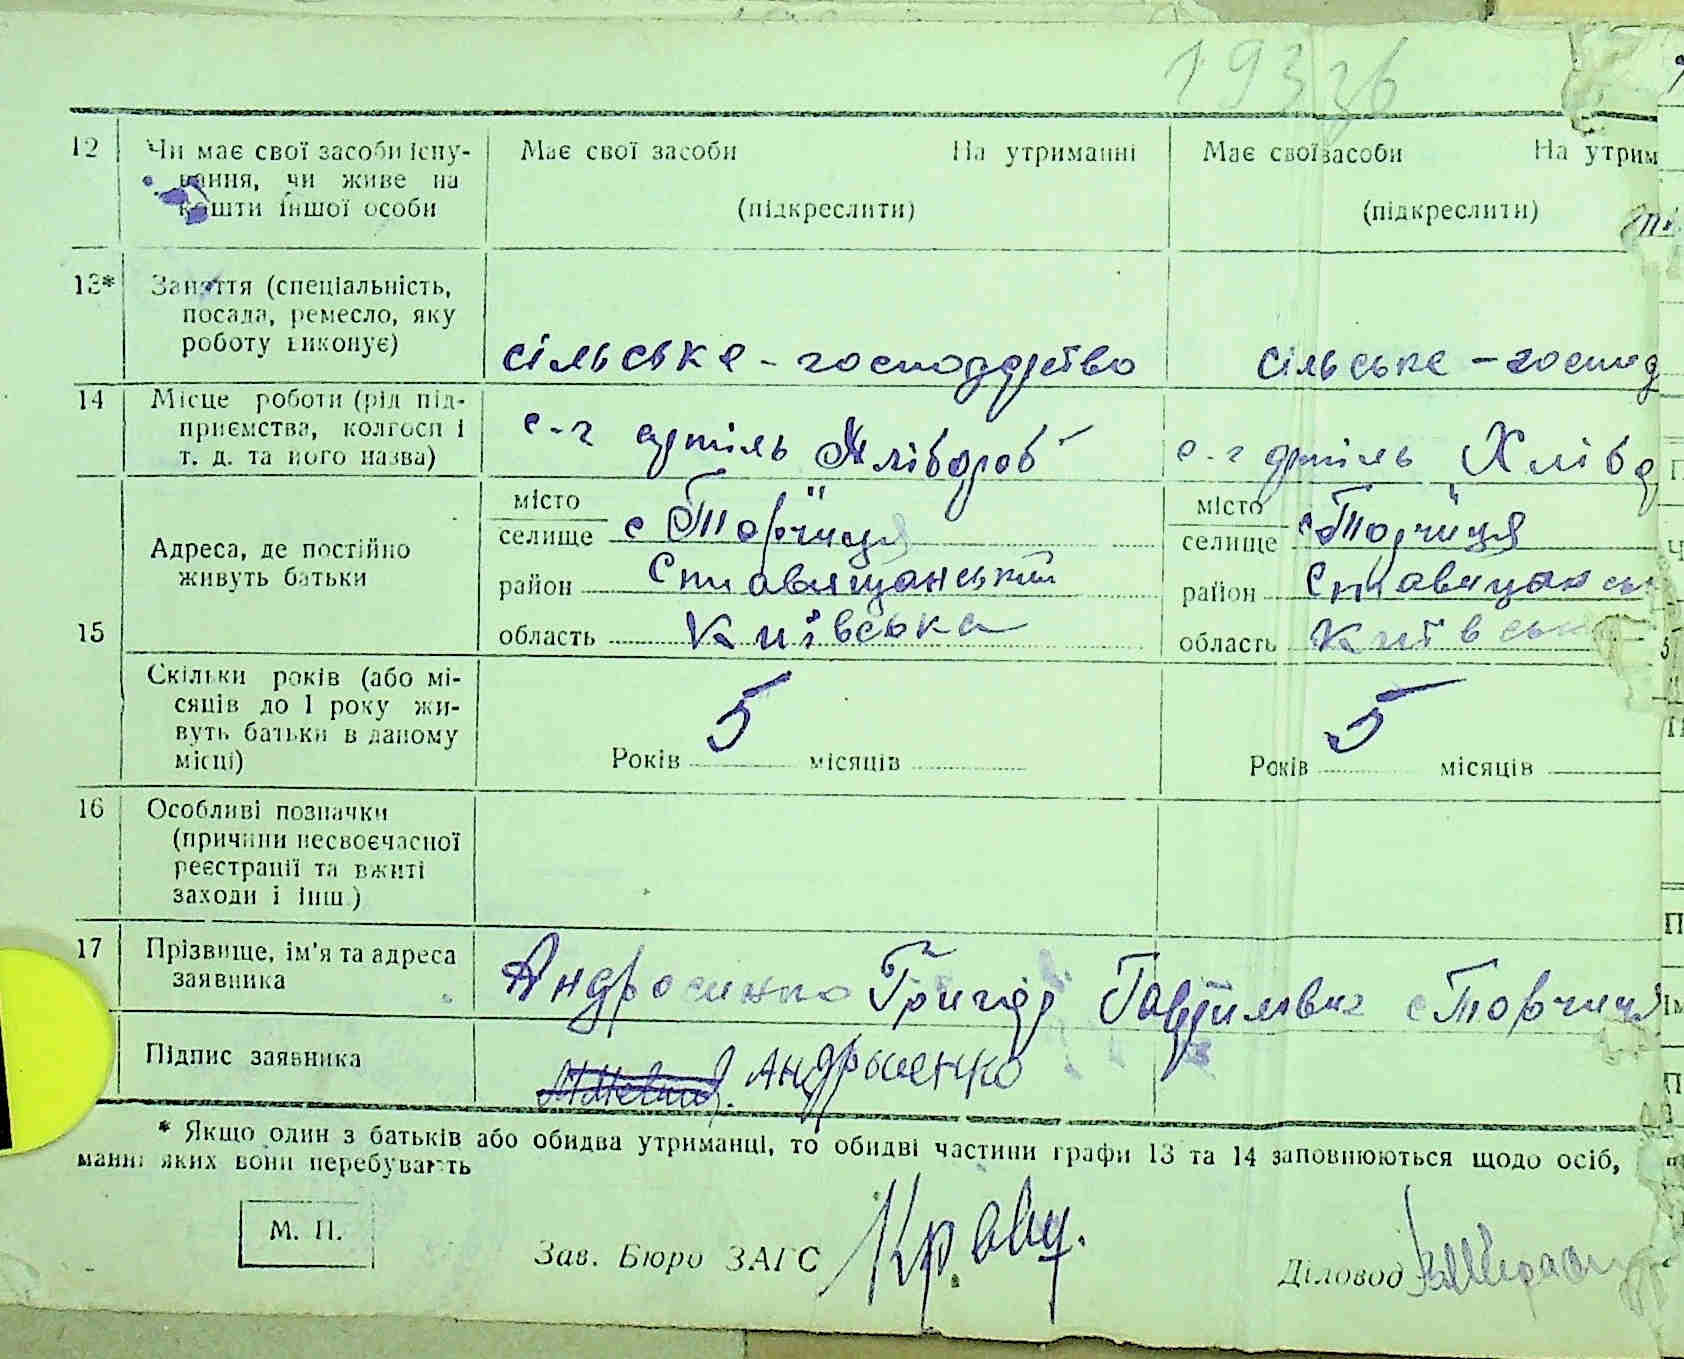 12 Чи має свої засоби існу-
вання, чи живе на
кошти іншої особи
Має свої засоби На утриманні
(підкреслити)
Має свої засоби На утрим
(підкреслити)
13* Заняття (спеціальність,
посада, ремесло, яку
роботу виконує)
сільське - господарство
сільське - господ
14 Місце роботи (рід під-
приємства, колгосп і
т. д. та його назва)
с-г артіль Хлібороб
с-г артіль Хлібо
15 Адреса, де постійно
живуть батьки
місто
селище с Торчиця
район Ставищанський
область Київська
місто
селище с Торчиця
район Ставищансь
область Київськ
Скільки років (або мі-
сяців до 1 року жи-
вуть батьки в даному
місці)
Років 5 місяців
Років 5 місяців
16 Особливі позначки
(причини несвоєчасної
реєстрації та вжиті
заходи і інш.)
17 Прізвище, ім'я та адреса
заявника
Андросенко Григор Гаврилович с Торчиця
Підпис заявника
Андрышенко
* Якщо один з батьків або обидва утриманці, то обидві частини графи 13 та 14 заповнюються щодо осіб,
манні яких вони перебувають
М. П.
Зав. Бюро ЗАГС Кравц.
Діловод